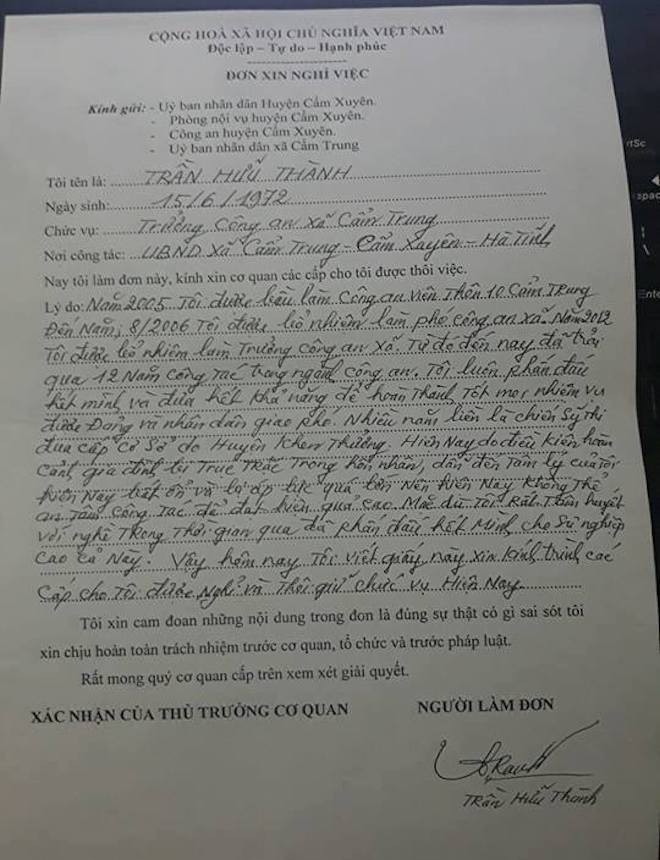 CỘNG HOÀ XÃ HỘI CHỦ NGHĨA VIỆT NAM
Độc lập – Tự do – Hạnh phúc
ĐƠN XIN NGHỈ VIỆC
Kính gửi: - Uỷ ban nhân dân Huyện Cẩm Xuyên.
- Phòng nội vụ huyện Cẩm Xuyên.
- Công an huyện Cẩm Xuyên.
- Uỷ ban nhân dân xã Cẩm Trung
Tôi tên là: TRẦN HỮU THÀNH
Ngày sinh: 15/6/1972
Chức vụ: Trưởng Công an xã Cẩm Trung
Nơi công tác: UBND Xã Cẩm Trung - Cẩm Xuyên - Hà Tĩnh
Nay tôi làm đơn này, kính xin cơ quan các cấp cho tôi được thôi việc.
Lý do: Năm 2005 Tôi được bầu làm Công an viên Thôn 10 Cẩm Trung
Đến Năm; 8/2006 Tôi được bổ nhiệm làm phó công an xã. Năm 2012
Tôi được bổ nhiệm làm Trưởng công an Xã. Từ đó đến nay đã trải
qua 12 Năm công tác trong ngành công an. Tôi luôn phấn đấu
hết mình và đưa hết khả năng để hoàn thành tốt mọi nhiệm vụ
được Đảng và nhân dân giao phó. Nhiều năm liền là chiến sỹ thi
đua cấp cơ sở do Huyện khen thưởng. Hiện Nay do điều kiện hoàn
cảnh gia đình bị Trục Trặc Trong hôn nhân, dẫn đến tâm lý của Tôi
hiện Nay bất ổn và bị áp lực quá lớn Nên hiện Nay không thể
an tâm công Tác để đạt hiệu quả cao Mặc dù Tôi Rất Tâm huyết
với nghề Trong Thời gian qua đã phấn đấu hết Mình cho sự nghiệp
cao cả Này. Vậy hôm nay Tôi viết giấy này xin kính trình các
cấp cho Tôi được Nghỉ và Thôi giữ chức vụ Hiện Nay
Tôi xin cam đoan những nội dung trong đơn là đúng sự thật có gì sai sót tôi
xin chịu hoàn toàn trách nhiệm trước cơ quan, tổ chức và trước pháp luật.
Rất mong quý cơ quan cấp trên xem xét giải quyết.
XÁC NHẬN CỦA THỦ TRƯỞNG CƠ QUAN
NGƯỜI LÀM ĐƠN
Trần Hữu Thành